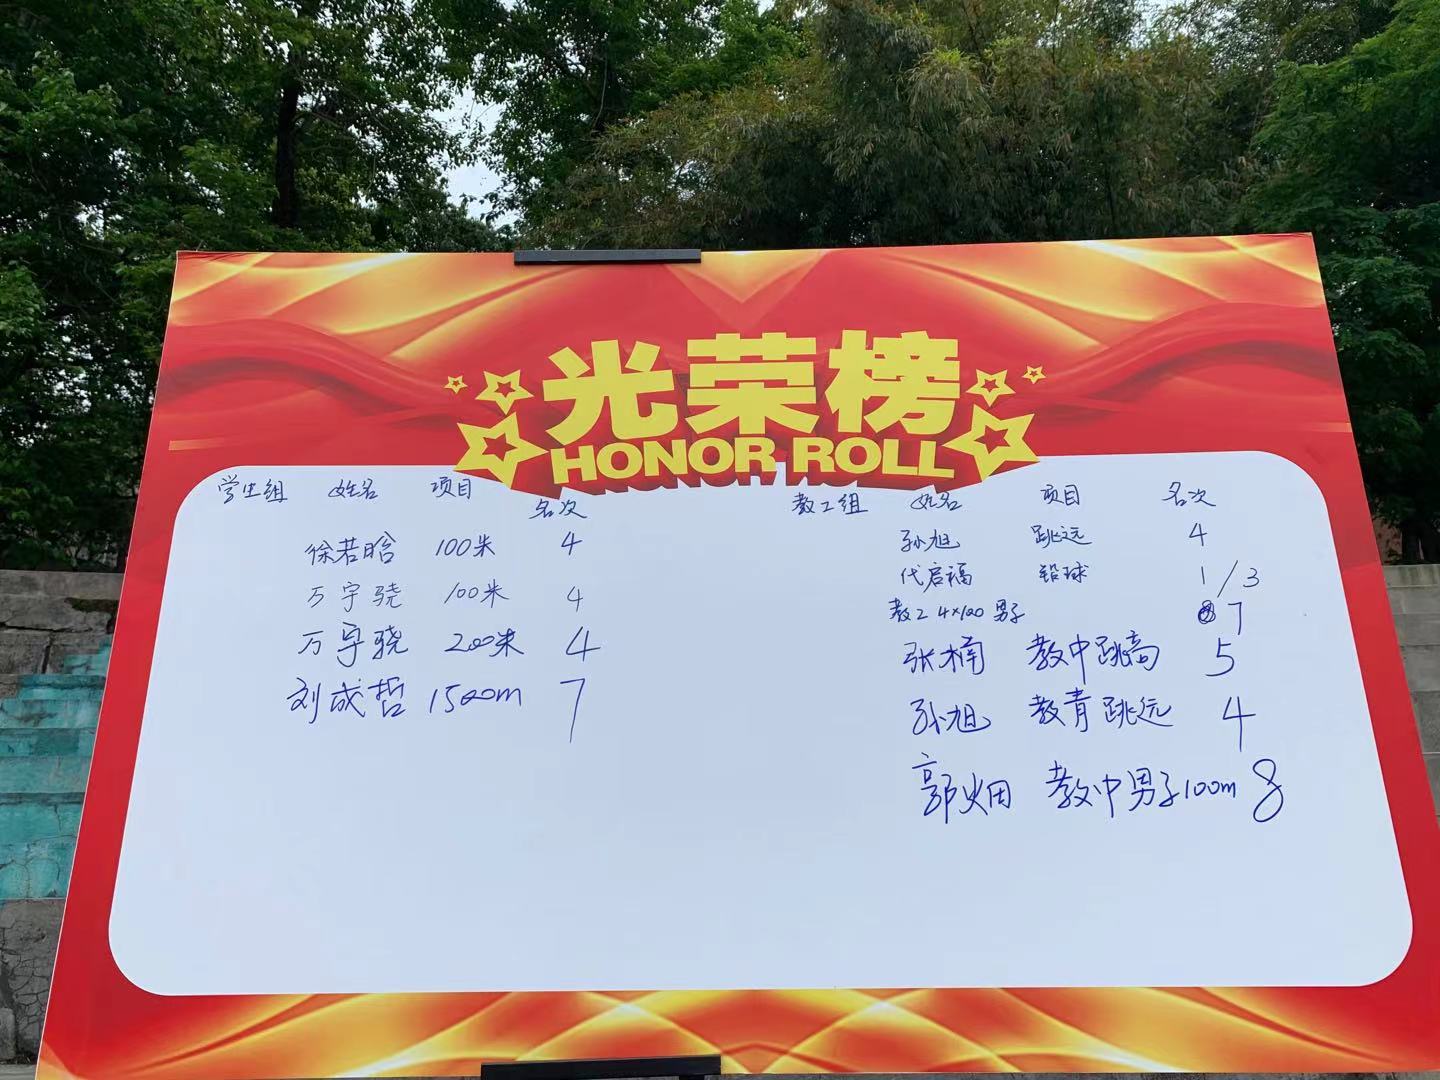 光荣榜
HONOR ROLL
学生组 姓名 项目 名次
徐若晗 100米 4
万宇骁 100米 4
万宇骁 200米 4
刘成哲 1500m 7
教工组 姓名 项目 名次
孙旭 跳远 4
代启福 铅球 1/3
教工4×100男子 7
张楠 教中跳高 5
孙旭 教青跳远 4
郭畑 教中男子100m 8